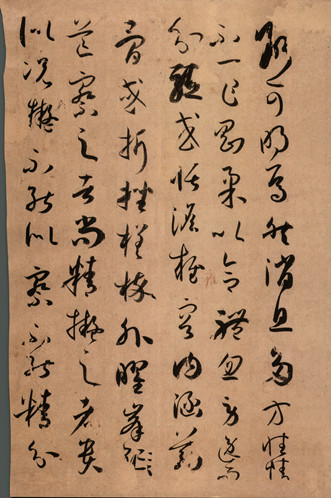 斷可明焉然消息多方性情
不一乍剛柔以合體忽勞逸而
分驅或恬憺雍容內涵筋
骨或折挫槎枿外曜峯
芒察之者尚精擬之者貴
似況擬不能似察不能精分